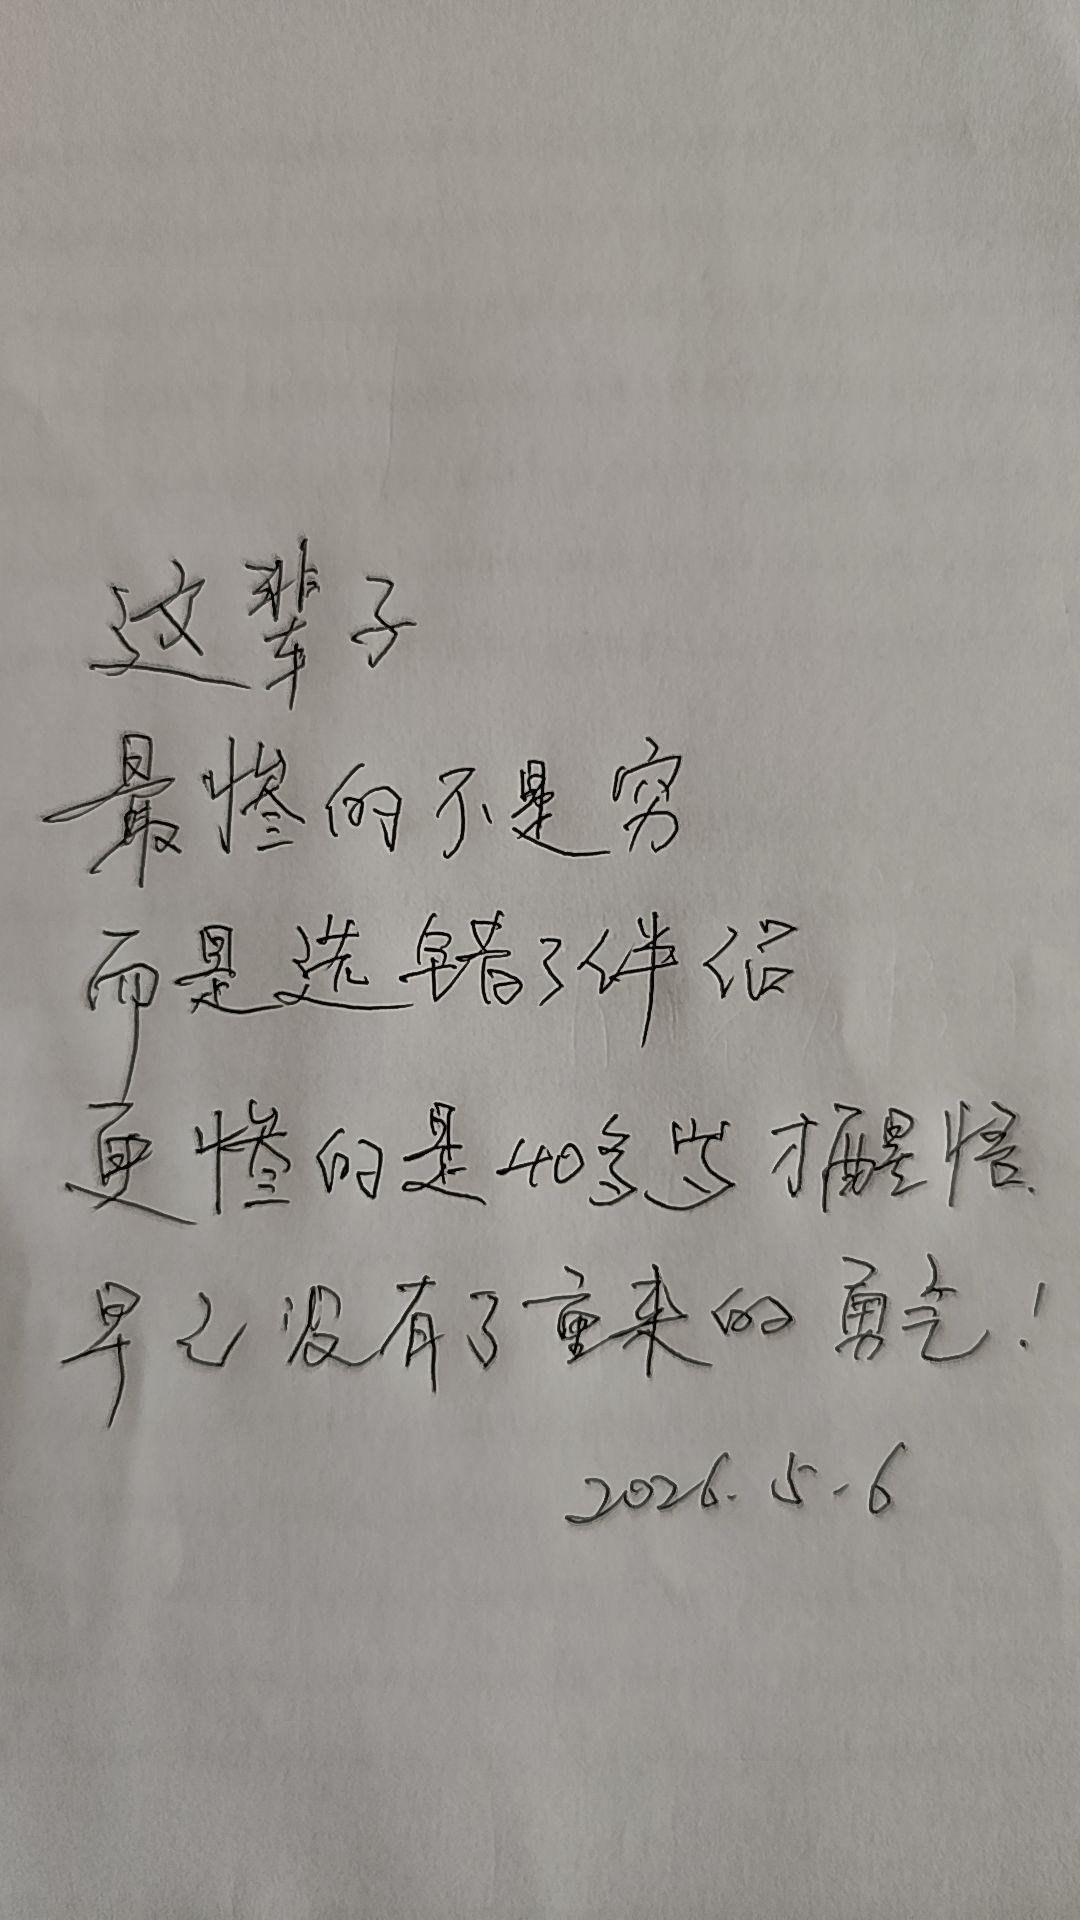 这辈子
最惨的不是穷
而是选错了伴侣
更惨的是40多岁才醒悟.
早已没有了重来的勇气!
2026.5.6